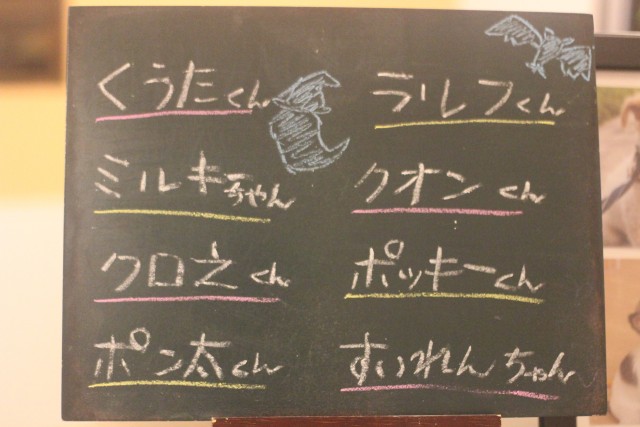 くうたくん
ミルキーちゃん
クロ之くん
ポン太くん
ラルフくん
クオンくん
ポッキーくん
すいれんちゃん